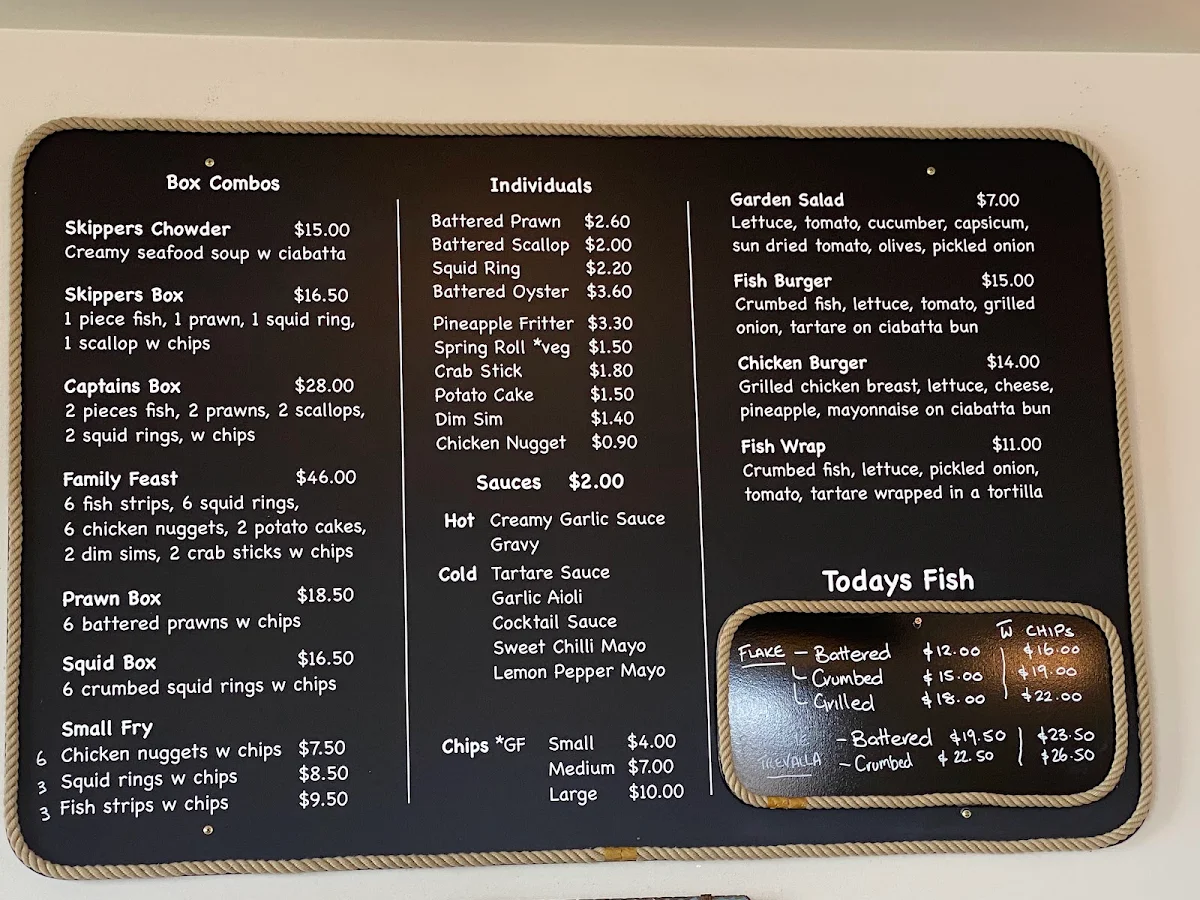 Box Combos
Skippers Chowder $15.00
Creamy seafood soup w ciabatta
Skippers Box $16.50
1 piece fish, 1 prawn, 1 squid ring,
1 scallop w chips
Captains Box $28.00
2 pieces fish, 2 prawns, 2 scallops,
2 squid rings, w chips
Family Feast $46.00
6 fish strips, 6 squid rings,
6 chicken nuggets, 2 potato cakes,
2 dim sims, 2 crab sticks w chips
Prawn Box $18.50
6 battered prawns w chips
Squid Box $16.50
6 crumbed squid rings w chips
Small Fry
6 Chicken nuggets w chips $7.50
3 Squid rings w chips $8.50
3 Fish strips w chips $9.50
Individuals
Battered Prawn $2.60
Battered Scallop $2.00
Squid Ring $2.20
Battered Oyster $3.60
Pineapple Fritter $3.30
Spring Roll *veg $1.50
Crab Stick $1.80
Potato Cake $1.50
Dim Sim $1.40
Chicken Nugget $0.90
Sauces $2.00
Hot Creamy Garlic Sauce
Gravy
Cold Tartare Sauce
Garlic Aioli
Cocktail Sauce
Sweet Chilli Mayo
Lemon Pepper Mayo
Chips *GF Small $4.00
Medium $7.00
Large $10.00
Garden Salad $7.00
Lettuce, tomato, cucumber, capsicum,
sun dried tomato, olives, pickled onion
Fish Burger $15.00
Crumbed fish, lettuce, tomato, grilled
onion, tartare on ciabatta bun
Chicken Burger $14.00
Grilled chicken breast, lettuce, cheese,
pineapple, mayonnaise on ciabatta bun
Fish Wrap $11.00
Crumbed fish, lettuce, pickled onion,
tomato, tartare wrapped in a tortilla
Todays Fish
W CHIPS
FLAKE - Battered $12.00 $16.00
Crumbed $15.00 $19.00
Grilled $18.00 $22.00
- Battered $19.50 $23.50
TREVALLA - Crumbed $22.50 $26.50